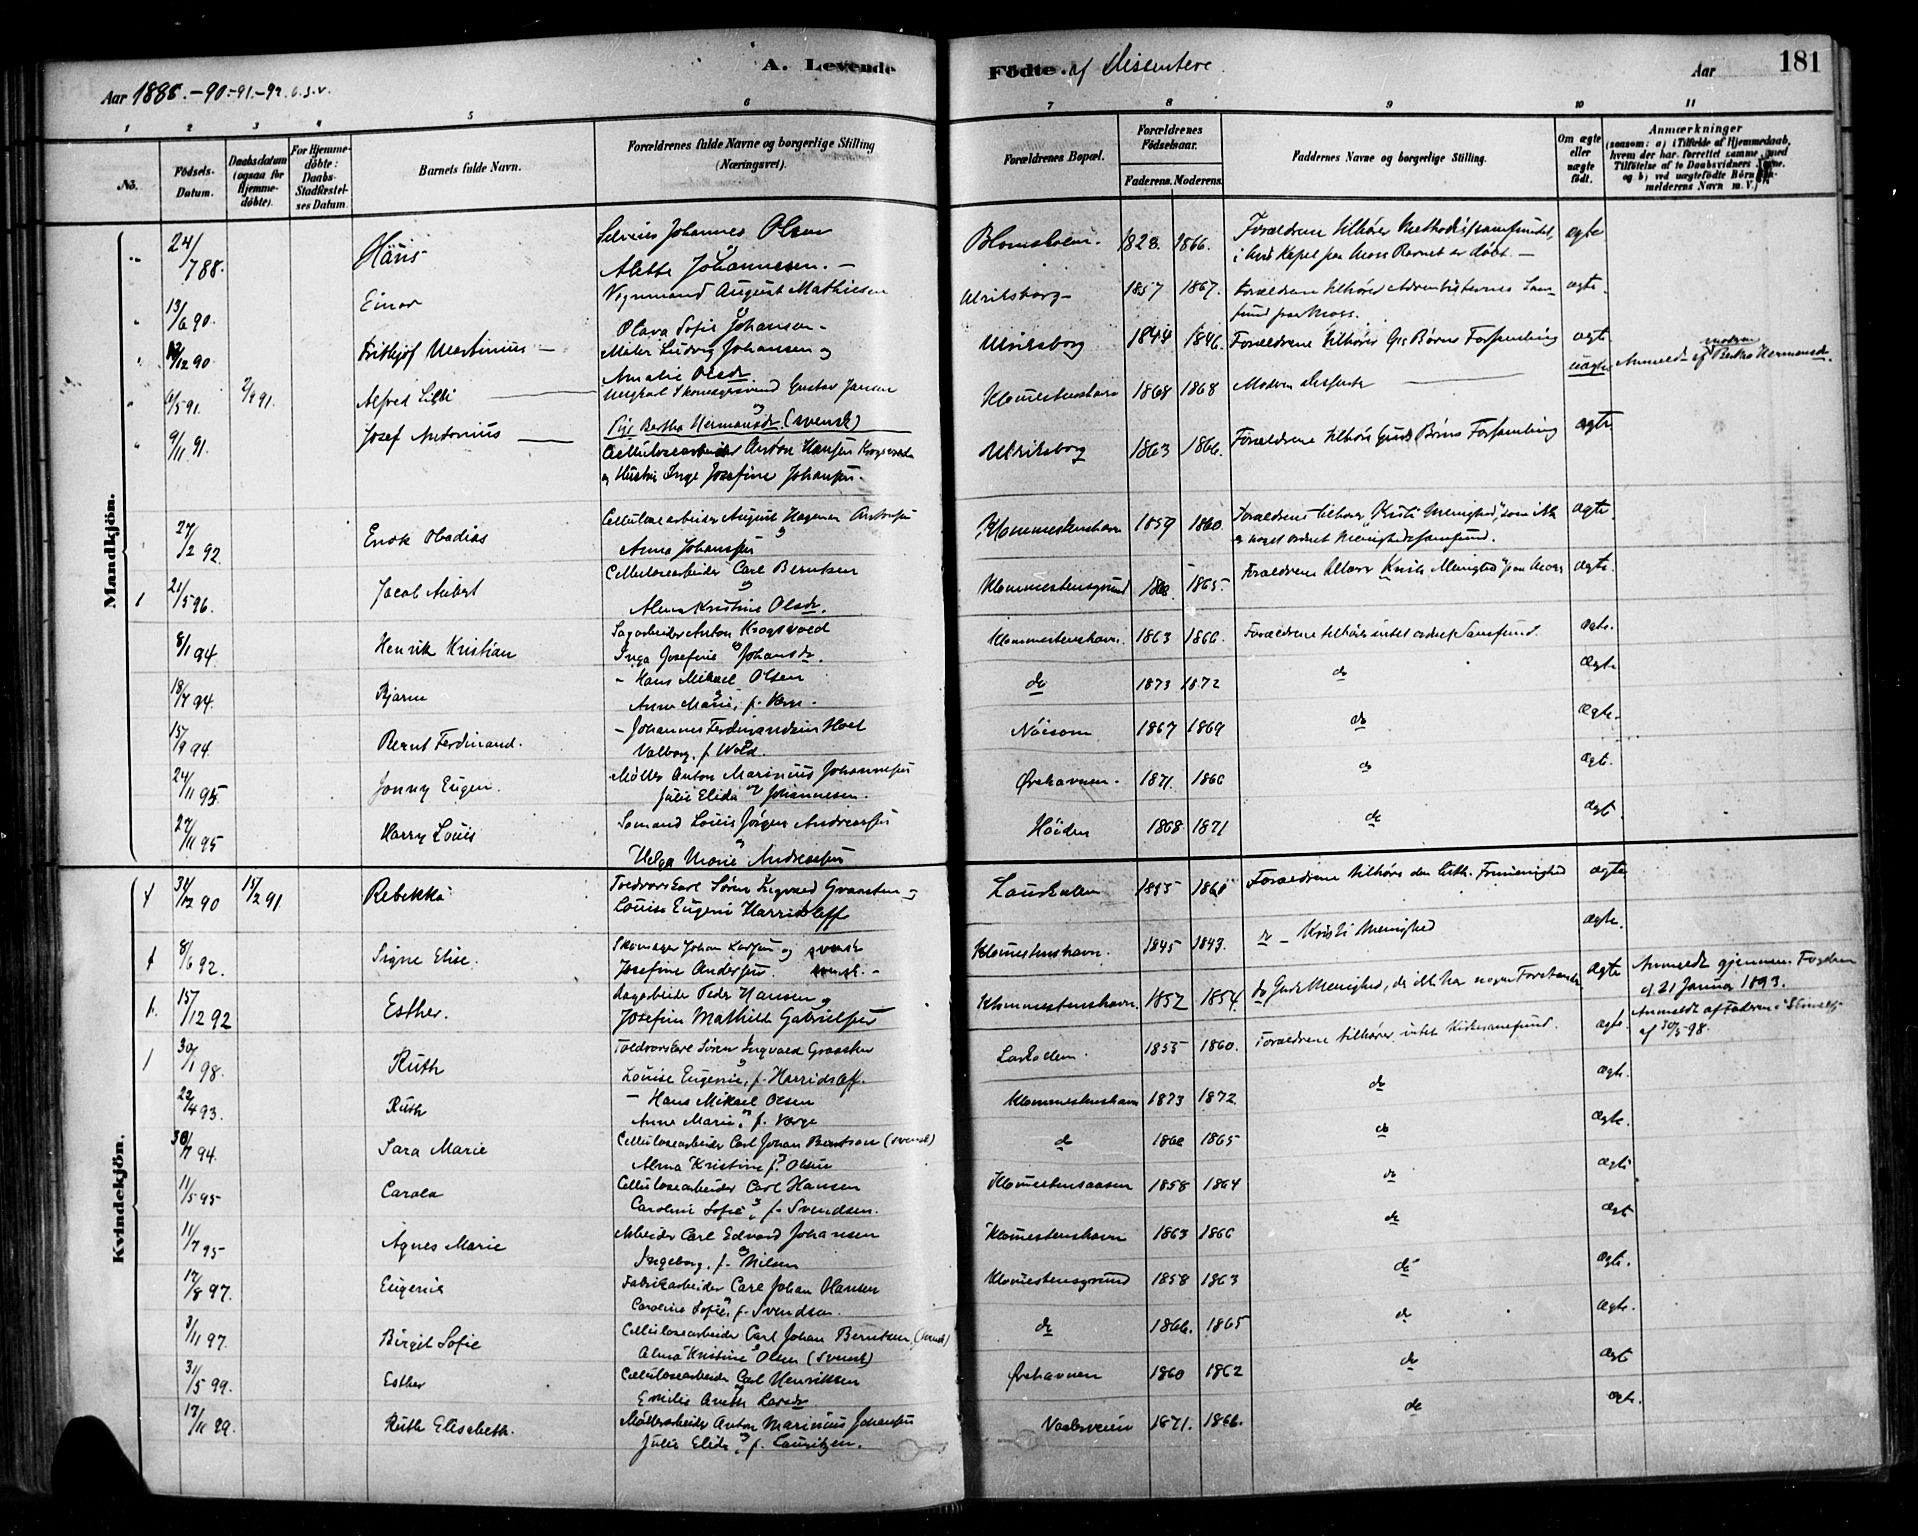 A. Levende Födte. af Dissentere.
Aar 1888.-90.-91.-92. o.s.v.
Aar
181
1 2 3 4 5 6 7 8 9 10 11
No. Födsels-Datum. Daabsdatum (ogsaa for Hjemme-döbte). For Hjemme-döbte: Daabs-Stadfæstel-ses Datum. Barnets fulde Navn. Forældrenes fulde Navne og borgerlige Stilling (Næringsvei). Forældrenes Bopæl. Forældrenes Födselsaar. Faderens. Moderens. Faddernes Navne og borgerlige Stilling. Om ægte eller uægte födt. Anmærkninger
Mandkjön.
24/7 88. Hans Johannes Olsen
Alette Johannesen. Blomsholm. 1828. 1866. Forældrene tilhører Methodistsamfundet, ægte
i hvis Kapel paa Moss Barnet er døbt.
13/6 90. Einar Vognmand August Mathiesen
Olava Sofie Johansen Ulriksborg 1857 1867. Forældrene tilhører Adventisternes Samfund paa Moss. ægte.
12/12 90 Frithjof Martinius Maler Ludvig Johansen og
Amalie Olsdr Ulriksborg 1844 1846. Forældrene tilhører Guds Børns Forsamling ægte
6/5 91. 2/9 91 Alfred Ungkarl Gustav Jansen
Pige Bertha Hermansdr. (svensk) 1868 1868 Moderen uægte Anmeldt af moderen Bertha Hermansd.
9/11 91. Josef Antonius Cellulosearbeider Anton Hansen Krogsvold
og Hustru Inga Josefine Johansen. Ulriksborg 1863 1866. Forældrene tilhøre Guds Børns Forsamling ægte
27/2 92. Enok Obadias Cellulosearbeider August
Anna Johansen Klommestenshavn 1859 1860. Forældrene tilhører "Kristi Menighed", som ikke ægte.
er noget ordnet Menighedssamfund.
1 21/5 96. Jacob Aubert Cellulosearbeider Carl Berntsen
Alma Kristine Olsdr. Klommestensgrund 1865. Forældrene tilhører Kristi Menighed paa Moss ægte.
8/1 94 Henrik Kristian Sagarbeider Anton Krogsvold
Inga Josefine Johansdr. Klommestenshavn. 1863 1866 Forældrene tilhører intet ordnet Samfund. ægte.
18/7 94. Bjarne - Hans Mikael Olsen
Anne Marie, f. do 1873 1872 do ægte
15/9 94 Bernt Ferdinand. - Johannes Ferdinandsen Hoel
Valborg, f. Wold. Nöisom 1867 1869 do ægte.
24/11 95 Jonny Eugen. Möller Anton Marinius Johannesen
Julie Elida Johannesen. Örehavnen. 1871. 1866 do ægte.
27/11 95 Harry Louis Sömand Louis Jörgen Andreasen
Helga Marie Andreasen Höiden 1868 1871 do ægte
Kvindekjön.
31/12 90 15/2 91 Rebekka Søren Ingvald Graasten og
Louise Eugeni Harridsleff 1855 1860 Forældrene tilhøre den luth. Frimenighed ægte
8/6 92. Signe Elise. Skomager Johan og svensk
Josefine Andersen. svensk. Klommestenshavn. 1845 1843. do - Kristi Menighed ægte.
15/12 92 Esther. Dagarbeider Peder Hansen og
Josefine Mathilde Gabrielsen Klommestenshavn. 1852 1854. do Guds Menighed, der ikke har nogen Forstander ægte Anmeldt gjennem Fogden
d. 21 Januar 1893.
1 30/1 98. Ruth Søren Ingvald Graasten
Louise Eugenie, f. Harridsleff. 1855 1860. Forældrene tilhører intet Kirkesamfund. ægte. Anmeldt af Faderen
af 30/5-98.
22/4 93. Ruth - Hans Mikael Olsen
Anne Marie, f. Klommestenshavn 1873 1872. do ægte.
30/7 94. Sara Marie Cellulosearbeider Carl Johan Berntsen (svensk)
Alma Kristine f. Olsen do 1865 do ægte.
11/5 95 Carola Cellulosearbeider Carl Hansen
Caroline Sofie, f. Svendsen. Klommestensaasen 1858 1864 do ægte
11/7 95 Agnes Marie Arbeider Carl Edvard Johansen
Ingeborg, f. Nilsen Klommestenshavn 1863 1866 do ægte
17/8 97. Eugenie Fabrikarbeider Carl Johan Hansen
Caroline Sofie, f. Svendsen. Klommestensgrund 1858 1863 do ægte.
3/11 97. Birgit Sofie Cellulosearbeider Carl Johan Berntsen (svensk)
Alma Kristine Olsen (svensk) do 1866. 1865 do ægte.
31/5 99. Esther Cellulosearbeider Carl Henriksen
Emilie Larsdr Örehavnen 1860 1862 do ægte
17/11 99. Ruth Elisabeth. Möllearbeider Anton Marinius Johansen
Julie Elida, f. Lauritzen. Vaalerveien 1871. 1866. do ægte.